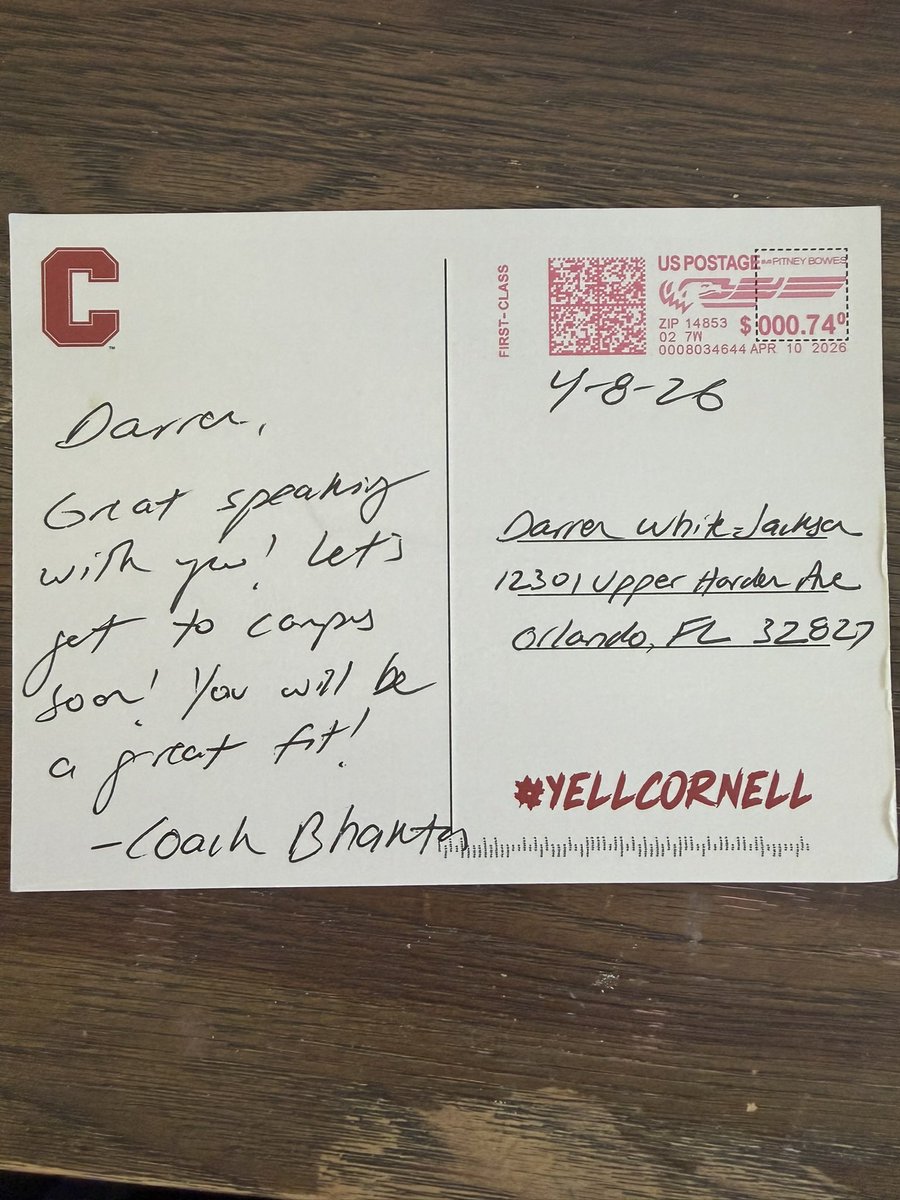 C
™
Darren,
Great speaking
with you! Let's
get to campus
soon! You will be
a great fit!
-Coach Bhakta
FIRST-CLASS
US POSTAGE IMI PITNEY BOWES
ZIP 14853
02 7W
$ 000.74⁰
0008034644 APR 10 2026
4-8-26
Darren White-Jackson
12301 Upper Harden Ave
Orlando, FL 32827
#YELLCORNELL